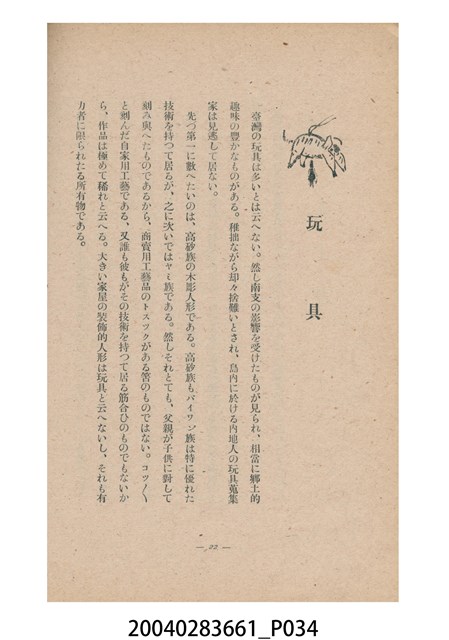 玩具
臺灣の玩具は多いとは云へない。然し南支の影響を受けたものが見られ、相當に鄕土的
趣味の豐かなものがある。稚拙ながら却々捨難いとされ、島内に於ける内地人の玩具蒐集
家は見逃して居ない。
先づ第一に數へたいのは、高砂族の木彫人形である。高砂族もパイワン族は特に優れた
技術を持つて居るが、之に次いではヤミ族である。然しそれとても、父親が子供に對して
刻み與へたものであるから、商賣用工藝品のトスツクがある筈のものではない。コツ〳〵
と刻んだ自家用工藝である、又誰も彼もがその技術を持つて居る筋合ひのものでもないか
ら、作品は極めて稀れと云へる。大きい家屋の裝飾的人形は玩具と云へないし、それも有
力者に限られたる所有物である。
— 22 —
20040283661_P034